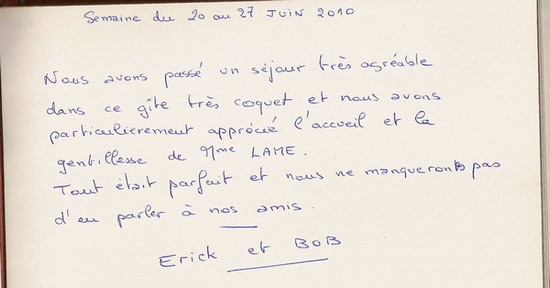 Semaine du 20 au 27 Juin 2010
Nous avons passé un séjour très agréable
dans ce gîte très coquet et nous avons
particulièrement apprécié l'accueil et la
gentillesse de Mme LAME.
Tout était parfait et nous ne manquerons pas
d'en parler à nos amis.
Erick et BOB